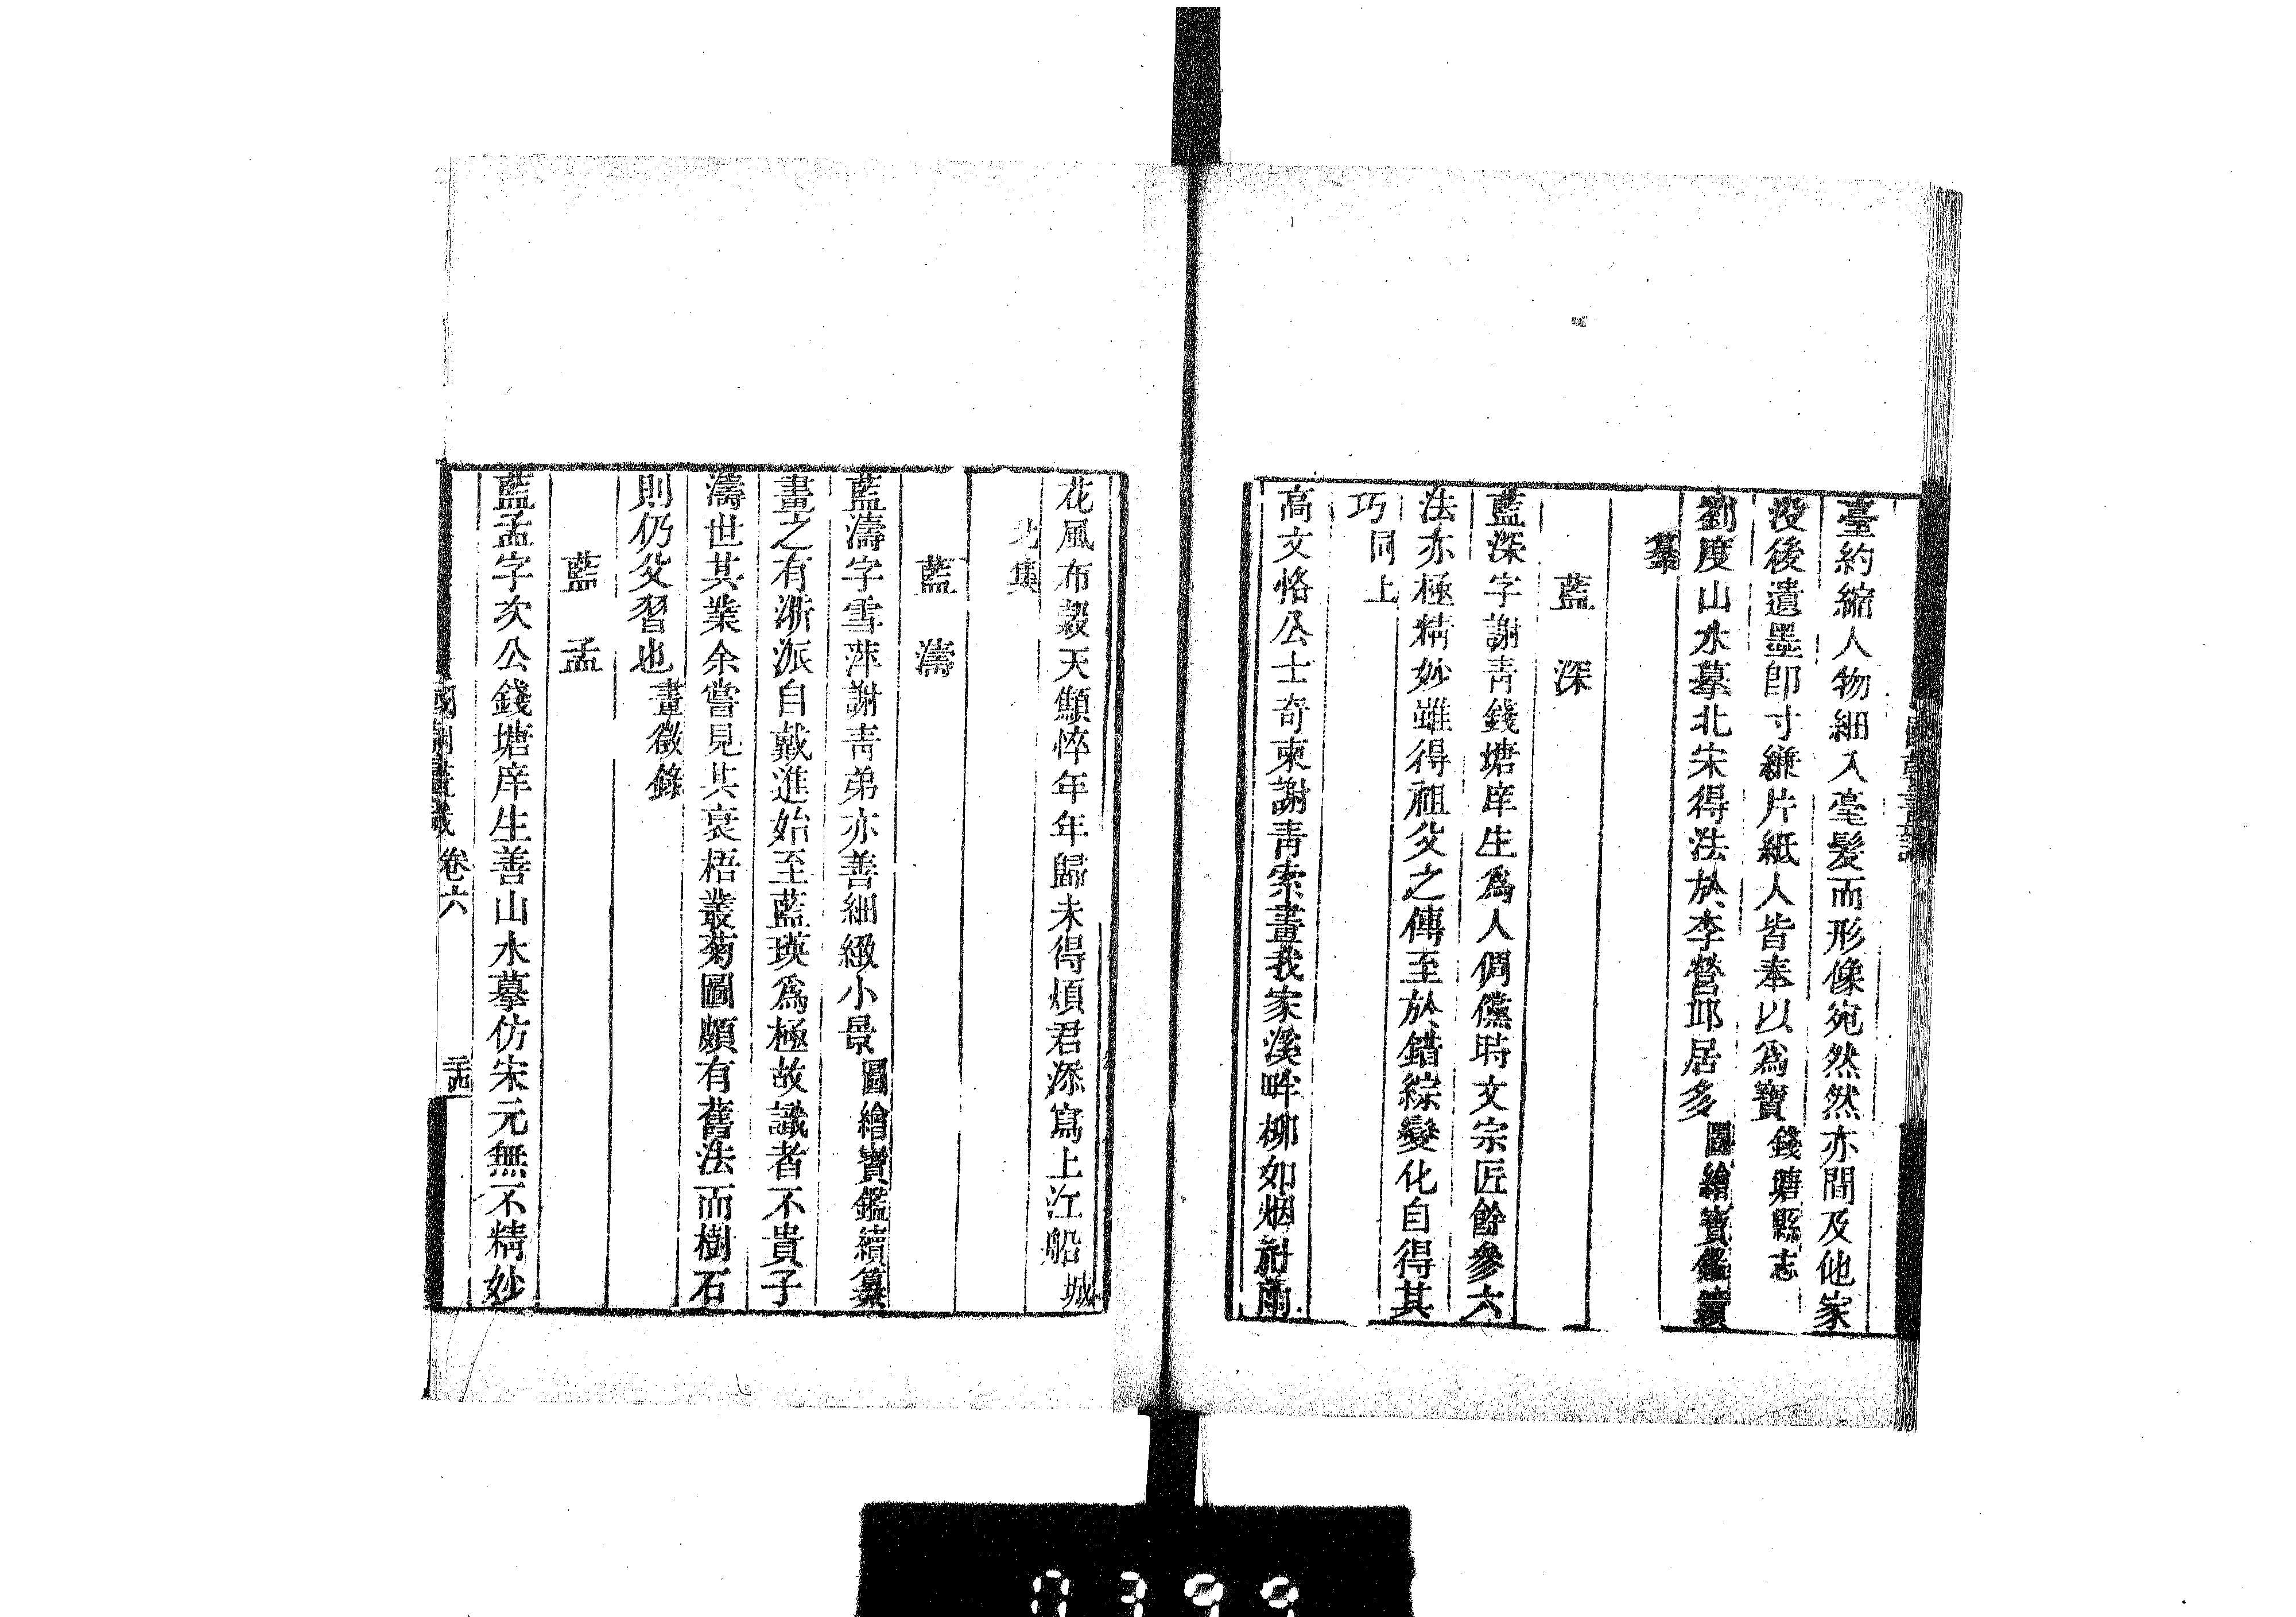 臺約縮人物細入毫髮而形像宛然然亦間及他家
没後遺墨卽寸縑片紙人皆奉以爲寶錢塘縣志
劉度山水摹北宋得法於李營邱居多圖繪寶鑑續
纂
藍深
藍深字謝青錢塘庠生爲人倜儻時文宗匠餘參六
法亦極精妙雖得祖父之傳至於錯綜變化自得其
巧同上
高文恪公士奇柬謝青索畫我家溪畔柳如烟
花風布穀天顦悴年年歸未得煩君添寫上江船城
北集
藍濤
藍濤字雪萍謝青弟亦善細緻小景圖繪寶鑑續纂
畫之有浙派自戴進始至藍瑛爲極故識者不貴子
濤世其業余嘗見其衰梧叢菊圖頗有舊法而樹石
則仍父習也畫徵錄
藍孟
藍孟字次公錢塘庠生善山水摹仿宋元無不精妙
國朝畫識 卷六
0399